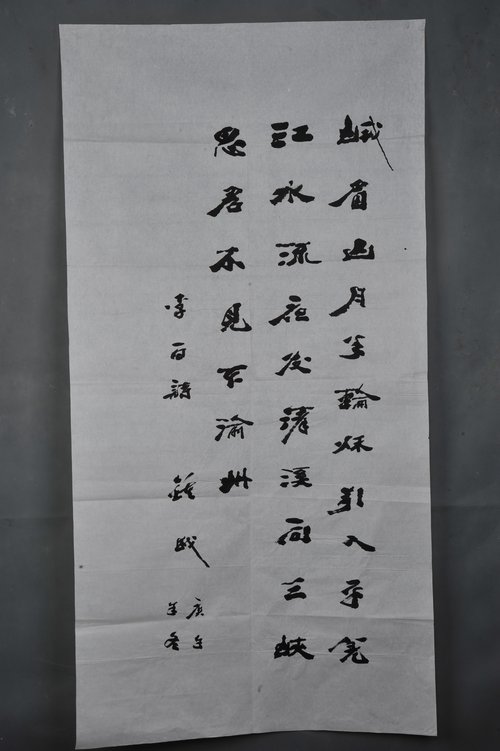 峨眉山月半輪秋影入平羌
江水流夜发清溪向三峡
思君不見下渝州
李白詩
庚午
年冬